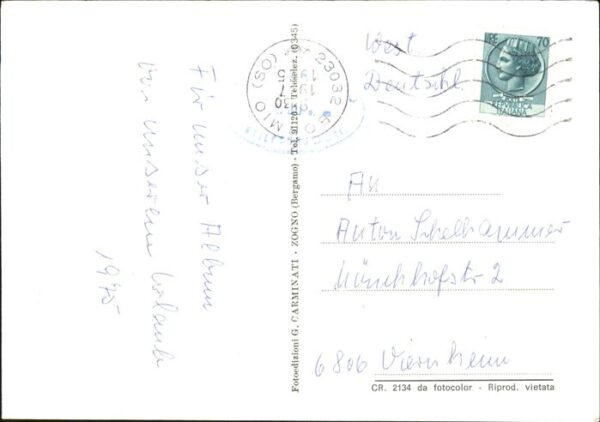 Für unser Album
von unserem Urlaub
1975
Fotoedizioni G. CARMINATI - ZOGNO (Bergamo) - Tel. 91203 Teleselez. (0345)
23032 BORMIO (SO)
West
Deutschl.
LIRE 70
REPUBBLICA
ITALIANA
An
Anton Schelhammer
Mönchhofstr 2
6806 Viernheim
CR. 2134 da fotocolor - Riprod. vietata